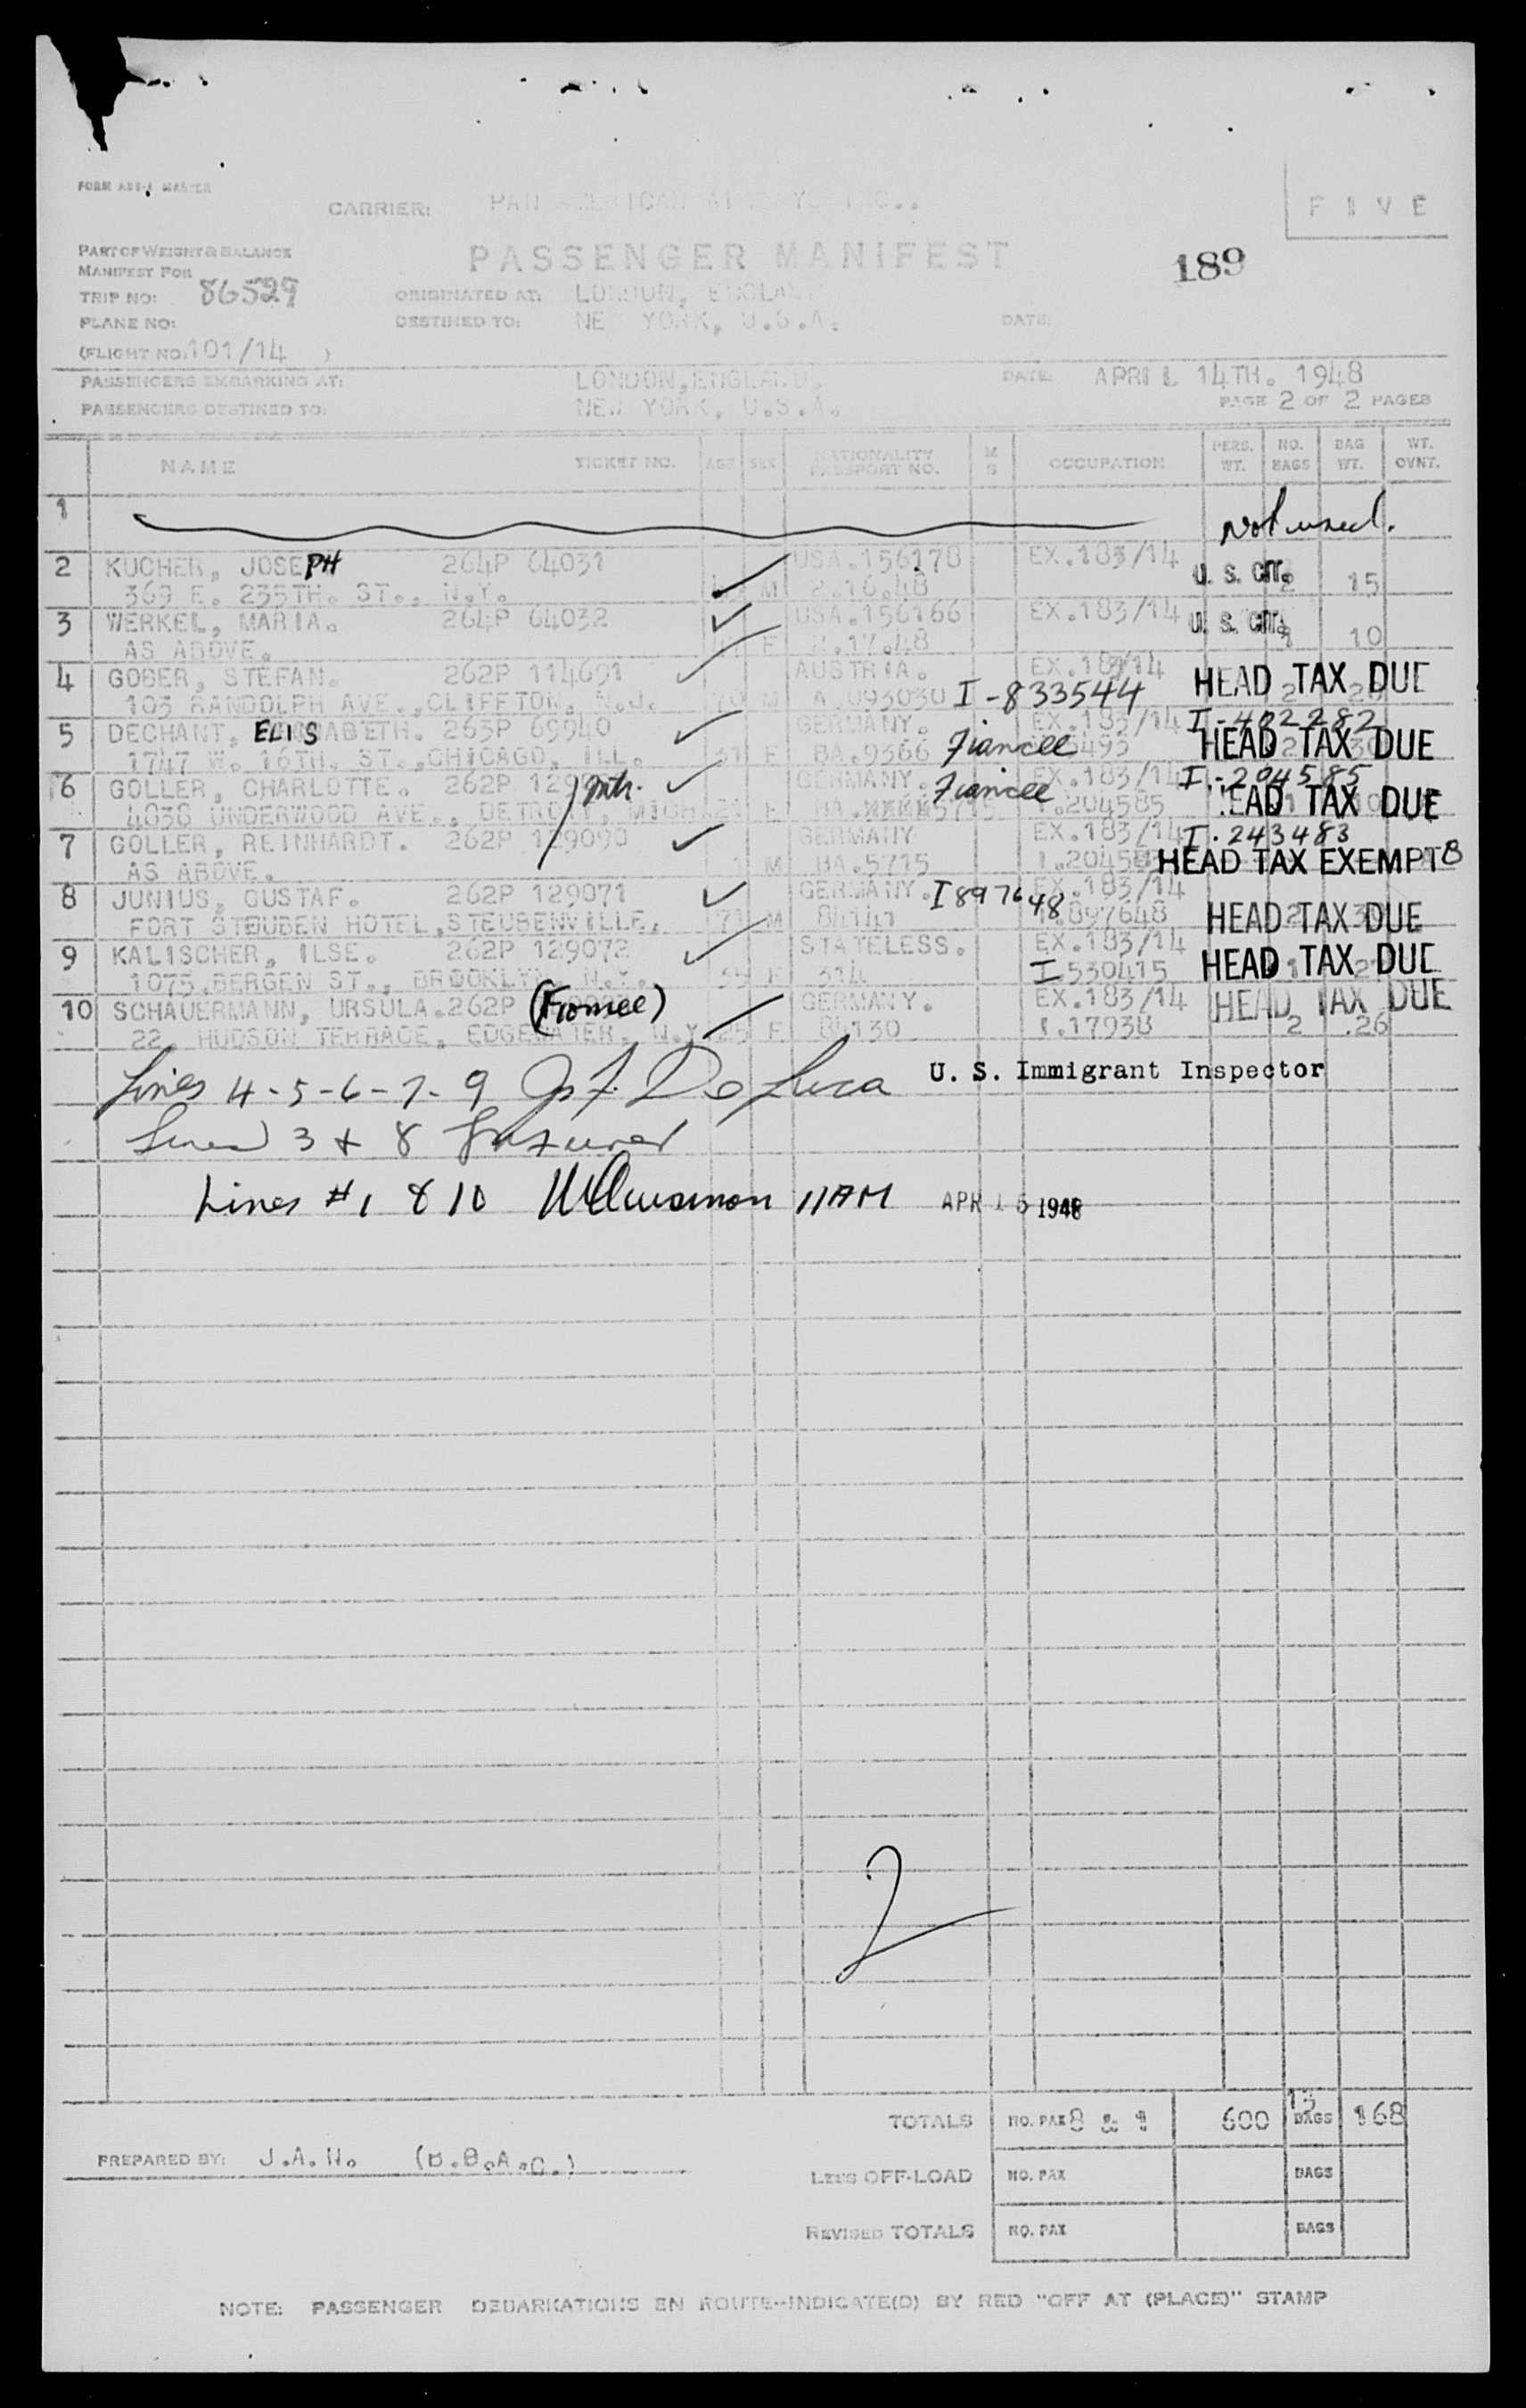 FORM
CARRIER: PAN AMERICAN AIRWAYS INC..
F I V E
PART OF WEIGHT & BALANCE
MANIFEST FOR
PASSENGER MANIFEST
189
TRIP NO: 86529
ORIGINATED AT: LONDON, ENGLAND
PLANE NO:
DESTINED TO: NEW YORK, U.S.A.
DATE:
(FLIGHT NO. 101/14 )
PASSENGERS EMBARKING AT: LONDON, ENGLAND.
DATE: APRIL 14TH. 1948
PASSENGERS DESTINED TO: NEW YORK, U.S.A.
PAGE 2 OF 2 PAGES
NAME TICKET NO. AGE SEX NATIONALITY PASSPORT NO. M S OCCUPATION PERS. WT. NO. BAGS BAG WT. WT. OVNT.
1 Not used.
2 KUCHER, JOSEPH 264P 64031 USA.156178 EX.183/14 U. S. CIT.
369 E. 235TH. ST., N.Y. M 2.16.48 2 15
3 WERKEL, MARIA. 264P 64032 USA.156166 EX.183/14 U. S. CIT.
AS ABOVE. F 2.17.48 10
4 GOBER, STEFAN. 262P 114691 AUSTRIA. EX.183/14 HEAD TAX DUE
103 RANDOLPH AVE., CLIFFTON, N.J. 70 M A.093030 I-833544
5 DECHANT, ELISABETH. 263P 69940 GERMANY. EX.183/14 I-402282
1747 W. 16TH. ST., CHICAGO, ILL. 31 F BA.9366 Fiancee HEAD TAX DUE
6 GOLLER, CHARLOTTE. 262P GERMANY. Fiancee EX.183/14 I.-204585
4038 UNDERWOOD AVE., DETROIT, MICH F 204585 HEAD TAX DUE
7 GOLLER, REINHARDT. 262P 129090 GERMANY EX.183/14 I.243483
AS ABOVE. 1 M BA.5715 HEAD TAX EXEMPT 8
8 JUNIUS, GUSTAF. 262P 129071 GERMANY. I 897648 EX.183/14
FORT STEUBEN HOTEL, STEUBENVILLE. 71 M 84141 I.897648 HEAD TAX DUE
9 KALISCHER, ILSE. 262P 129072 STATELESS. EX.183/14
1075, BERGEN ST., BROOKLYN, N.Y. 39 F 314 I 530415 HEAD TAX DUE
10 SCHAUERMANN, URSULA. 262P (Fiancee) GERMANY. EX.183/14 HEAD TAX DUE
22, HUDSON TERRACE, EDGEWATER, N.Y. 25 F 84130 I.17938 2 26
Lines 4-5-6-7-9 De Luca U. S. Immigrant Inspector
Lines 3 & 8
Lines #1 & 10 11AM APR 15 1948
2
TOTALS NO. PAX 8 & 1 600 13 BAGS 168
PREPARED BY: J.A.H. (B.O.A.C.)
LESS OFF-LOAD NO. PAX BAGS
REVISED TOTALS NO. PAX BAGS
NOTE: PASSENGER DEBARKATIONS EN ROUTE-INDICATE(D) BY RED "OFF AT (PLACE)" STAMP